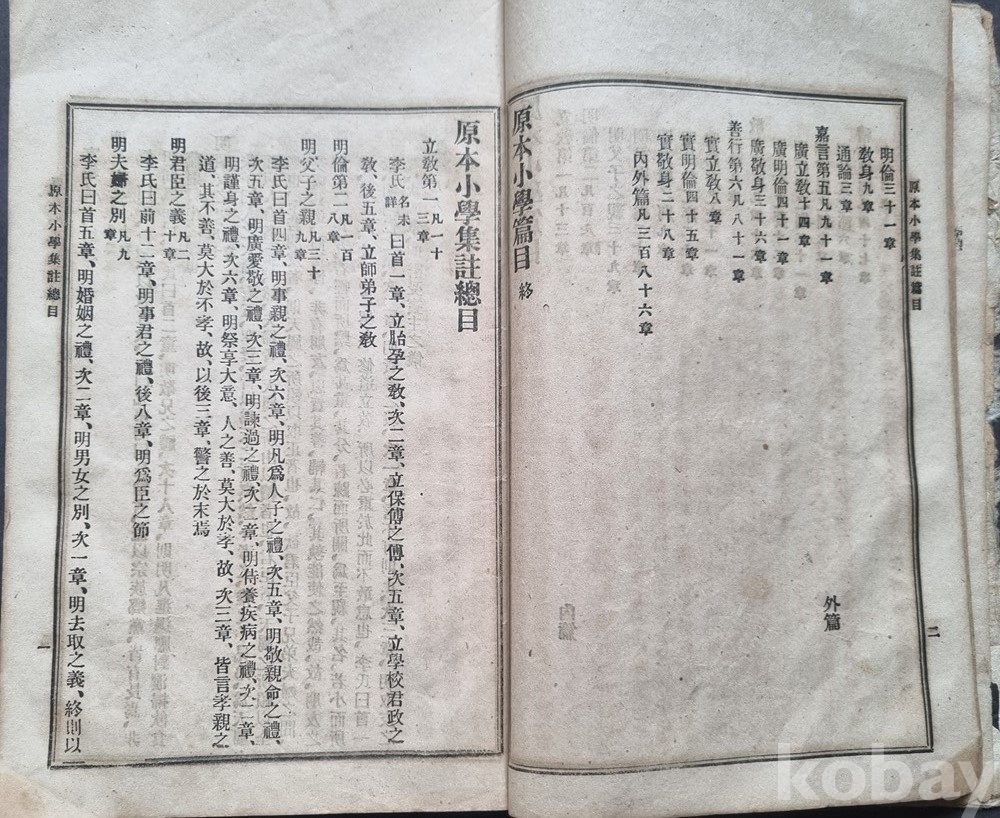 原本小學集註篇目
二
明倫三十一章
敎身九章
通論三章
外篇
嘉言第五凡九十一章
廣立敎十四章
廣明倫四十一章
廣敬身三十六章
善行第六凡八十一章
實立敎八章
實明倫四十五章
實敬身二十八章
內外篇凡三百八十六章
原本小學篇目 終
原本小學集註總目
立敎第一 凡一十三章
李氏 名未詳 曰首一章、立胎孕之敎、次二章、立保傅之傳、次五章、立學校君政之
敎、後五章、立師弟子之敎
明倫第二 凡一百八章
明父子之親 凡三十九章
李氏曰首四章、明事親之禮、次六章、明凡爲人子之禮、次五章、明敬親命之禮、
次五章、明廣愛敬之禮、次三章、明諫過之禮、次二章、明侍養疾病之禮、次二章、
明謹身之禮、次六章、明祭享大意、人之善、莫大於孝、故、次三章、皆言孝親之
道、其不善、莫大於不孝、故、以後三章、警之於末焉
明君臣之義 凡二十章
李氏曰前十二章、明事君之禮、後八章、明爲臣之節
明夫婦之別 凡九章
李氏曰首五章、明婚姻之禮、次二章、明男女之別、次一章、明去取之義、終則以
原本小學集註總目
一
kobay